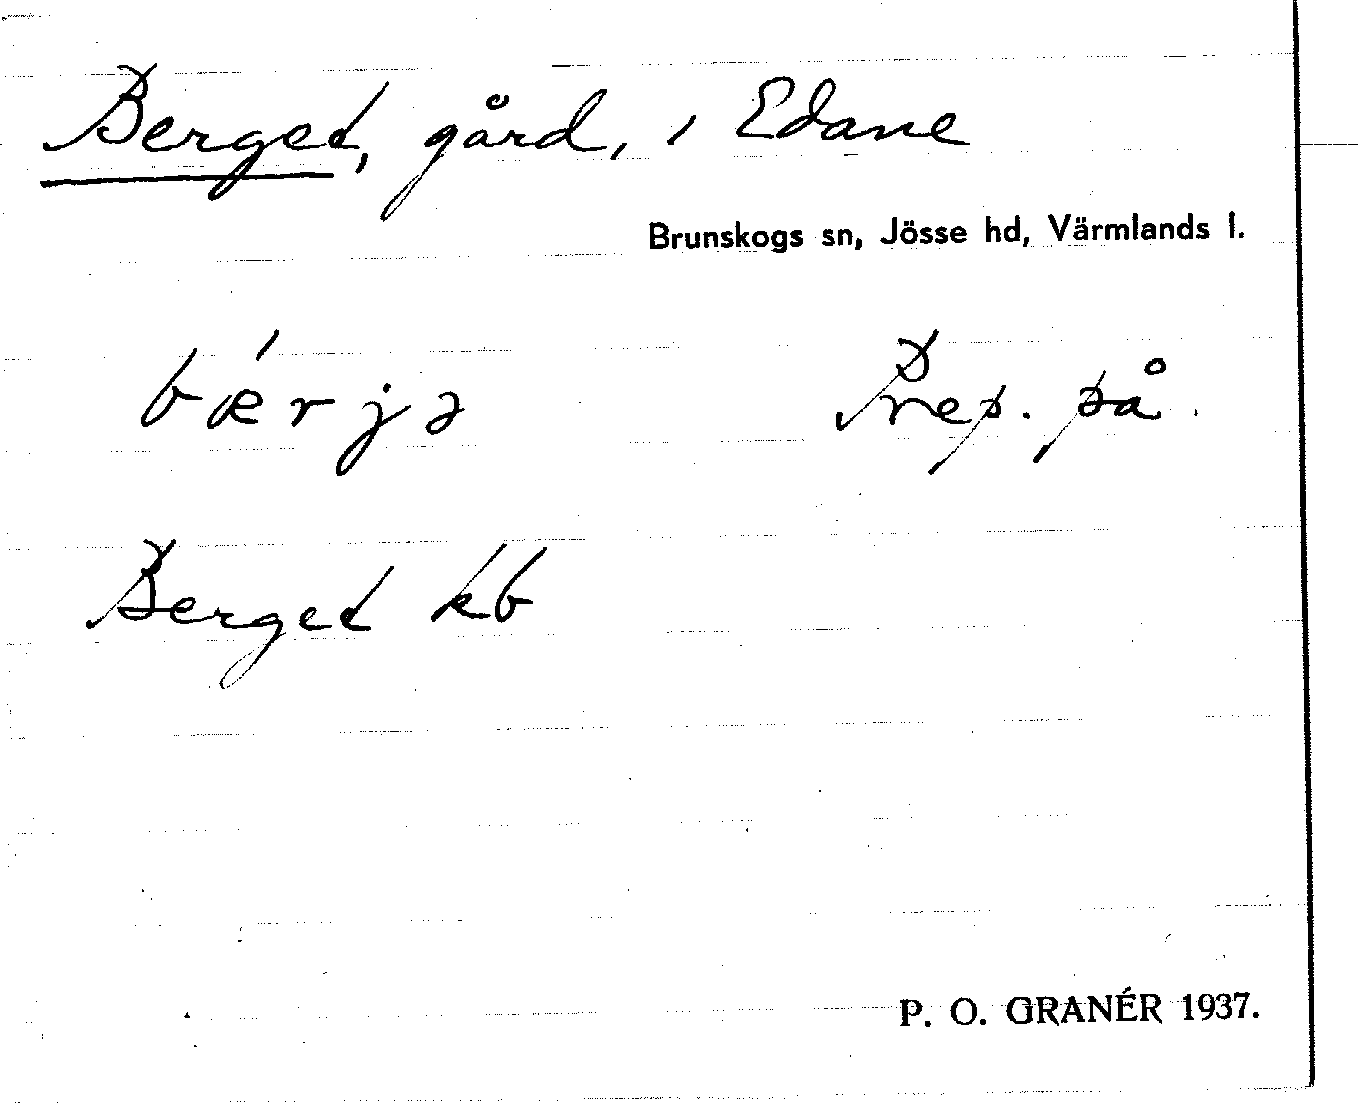 Berget, gård, i Edane
Brunskogs sn, Jösse hd, Värmlands l.
bǽrjə Prep. på.
Berget kb
P. O. GRANÉR 1937.